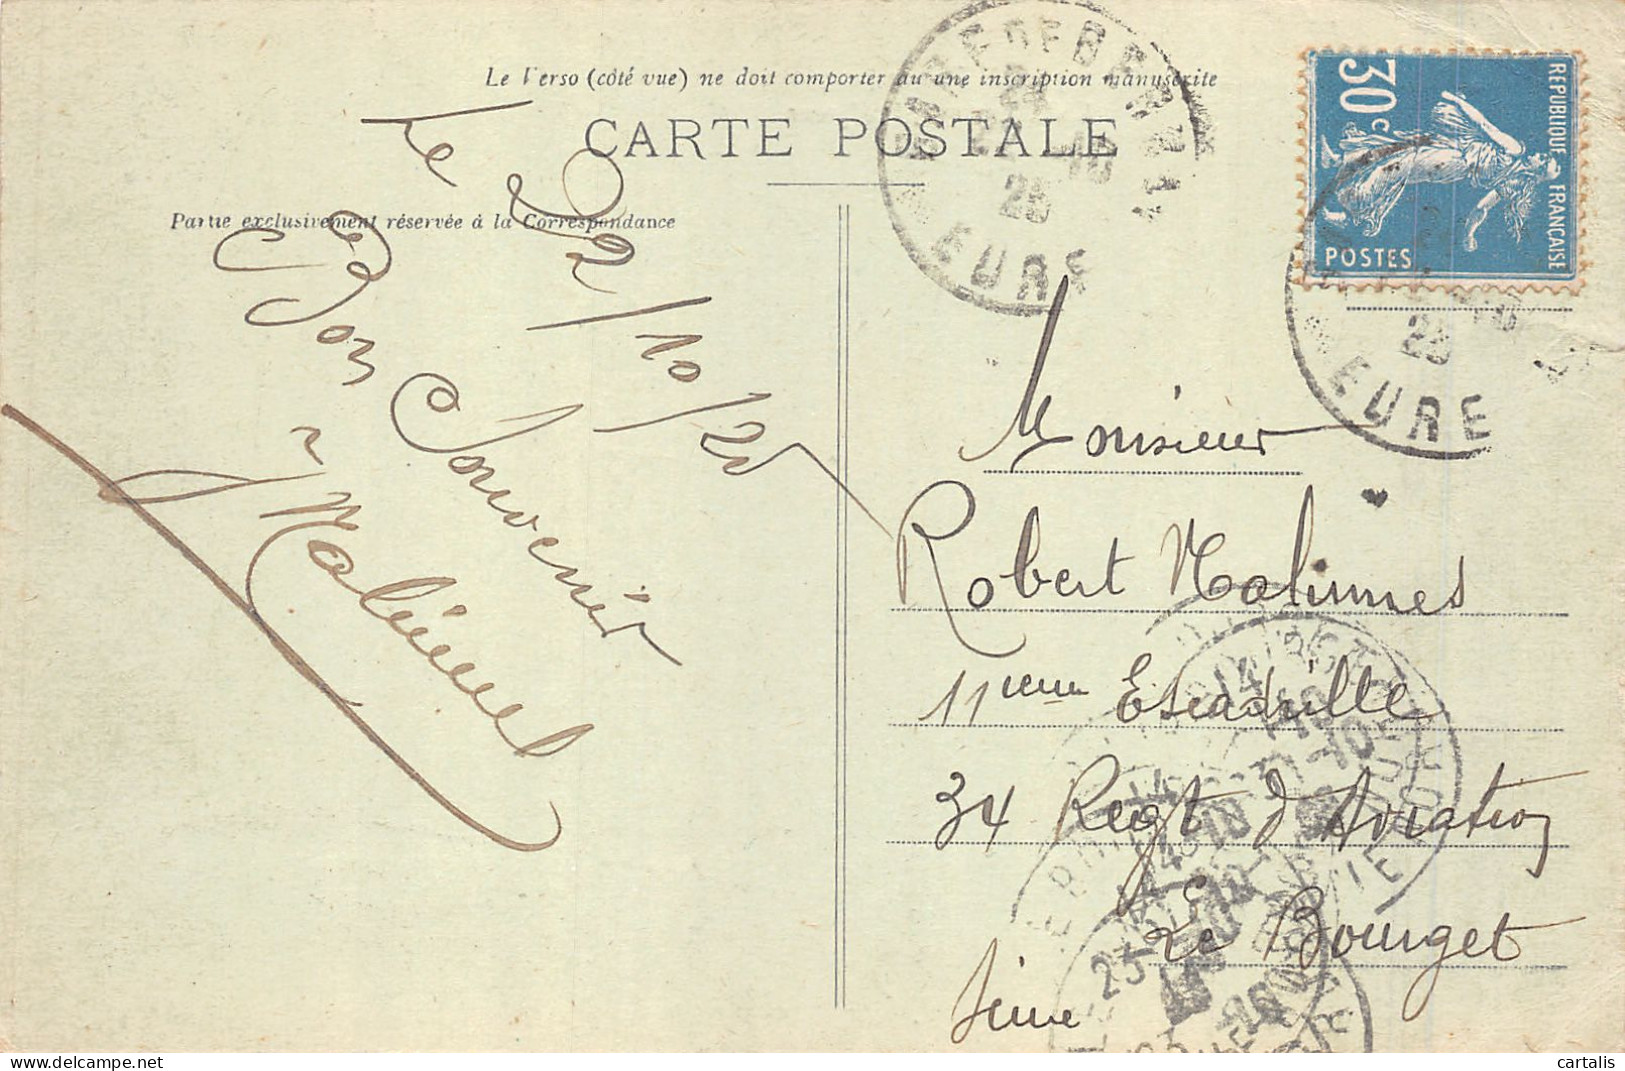 Le Verso (côté vue) ne doit comporter au une inscription manuscrite
CARTE POSTALE
Partie exclusivement réservée à la Correspondance
Le 22/10/25
Bon Souvenir
30c
REPUBLIQUE FRANÇAISE
POSTES
EURE
25
EURE
25
Monsieur
Robert
11eme Escadrille
34 Regt d'Aviation
Le Bourget
Seine
cartalis